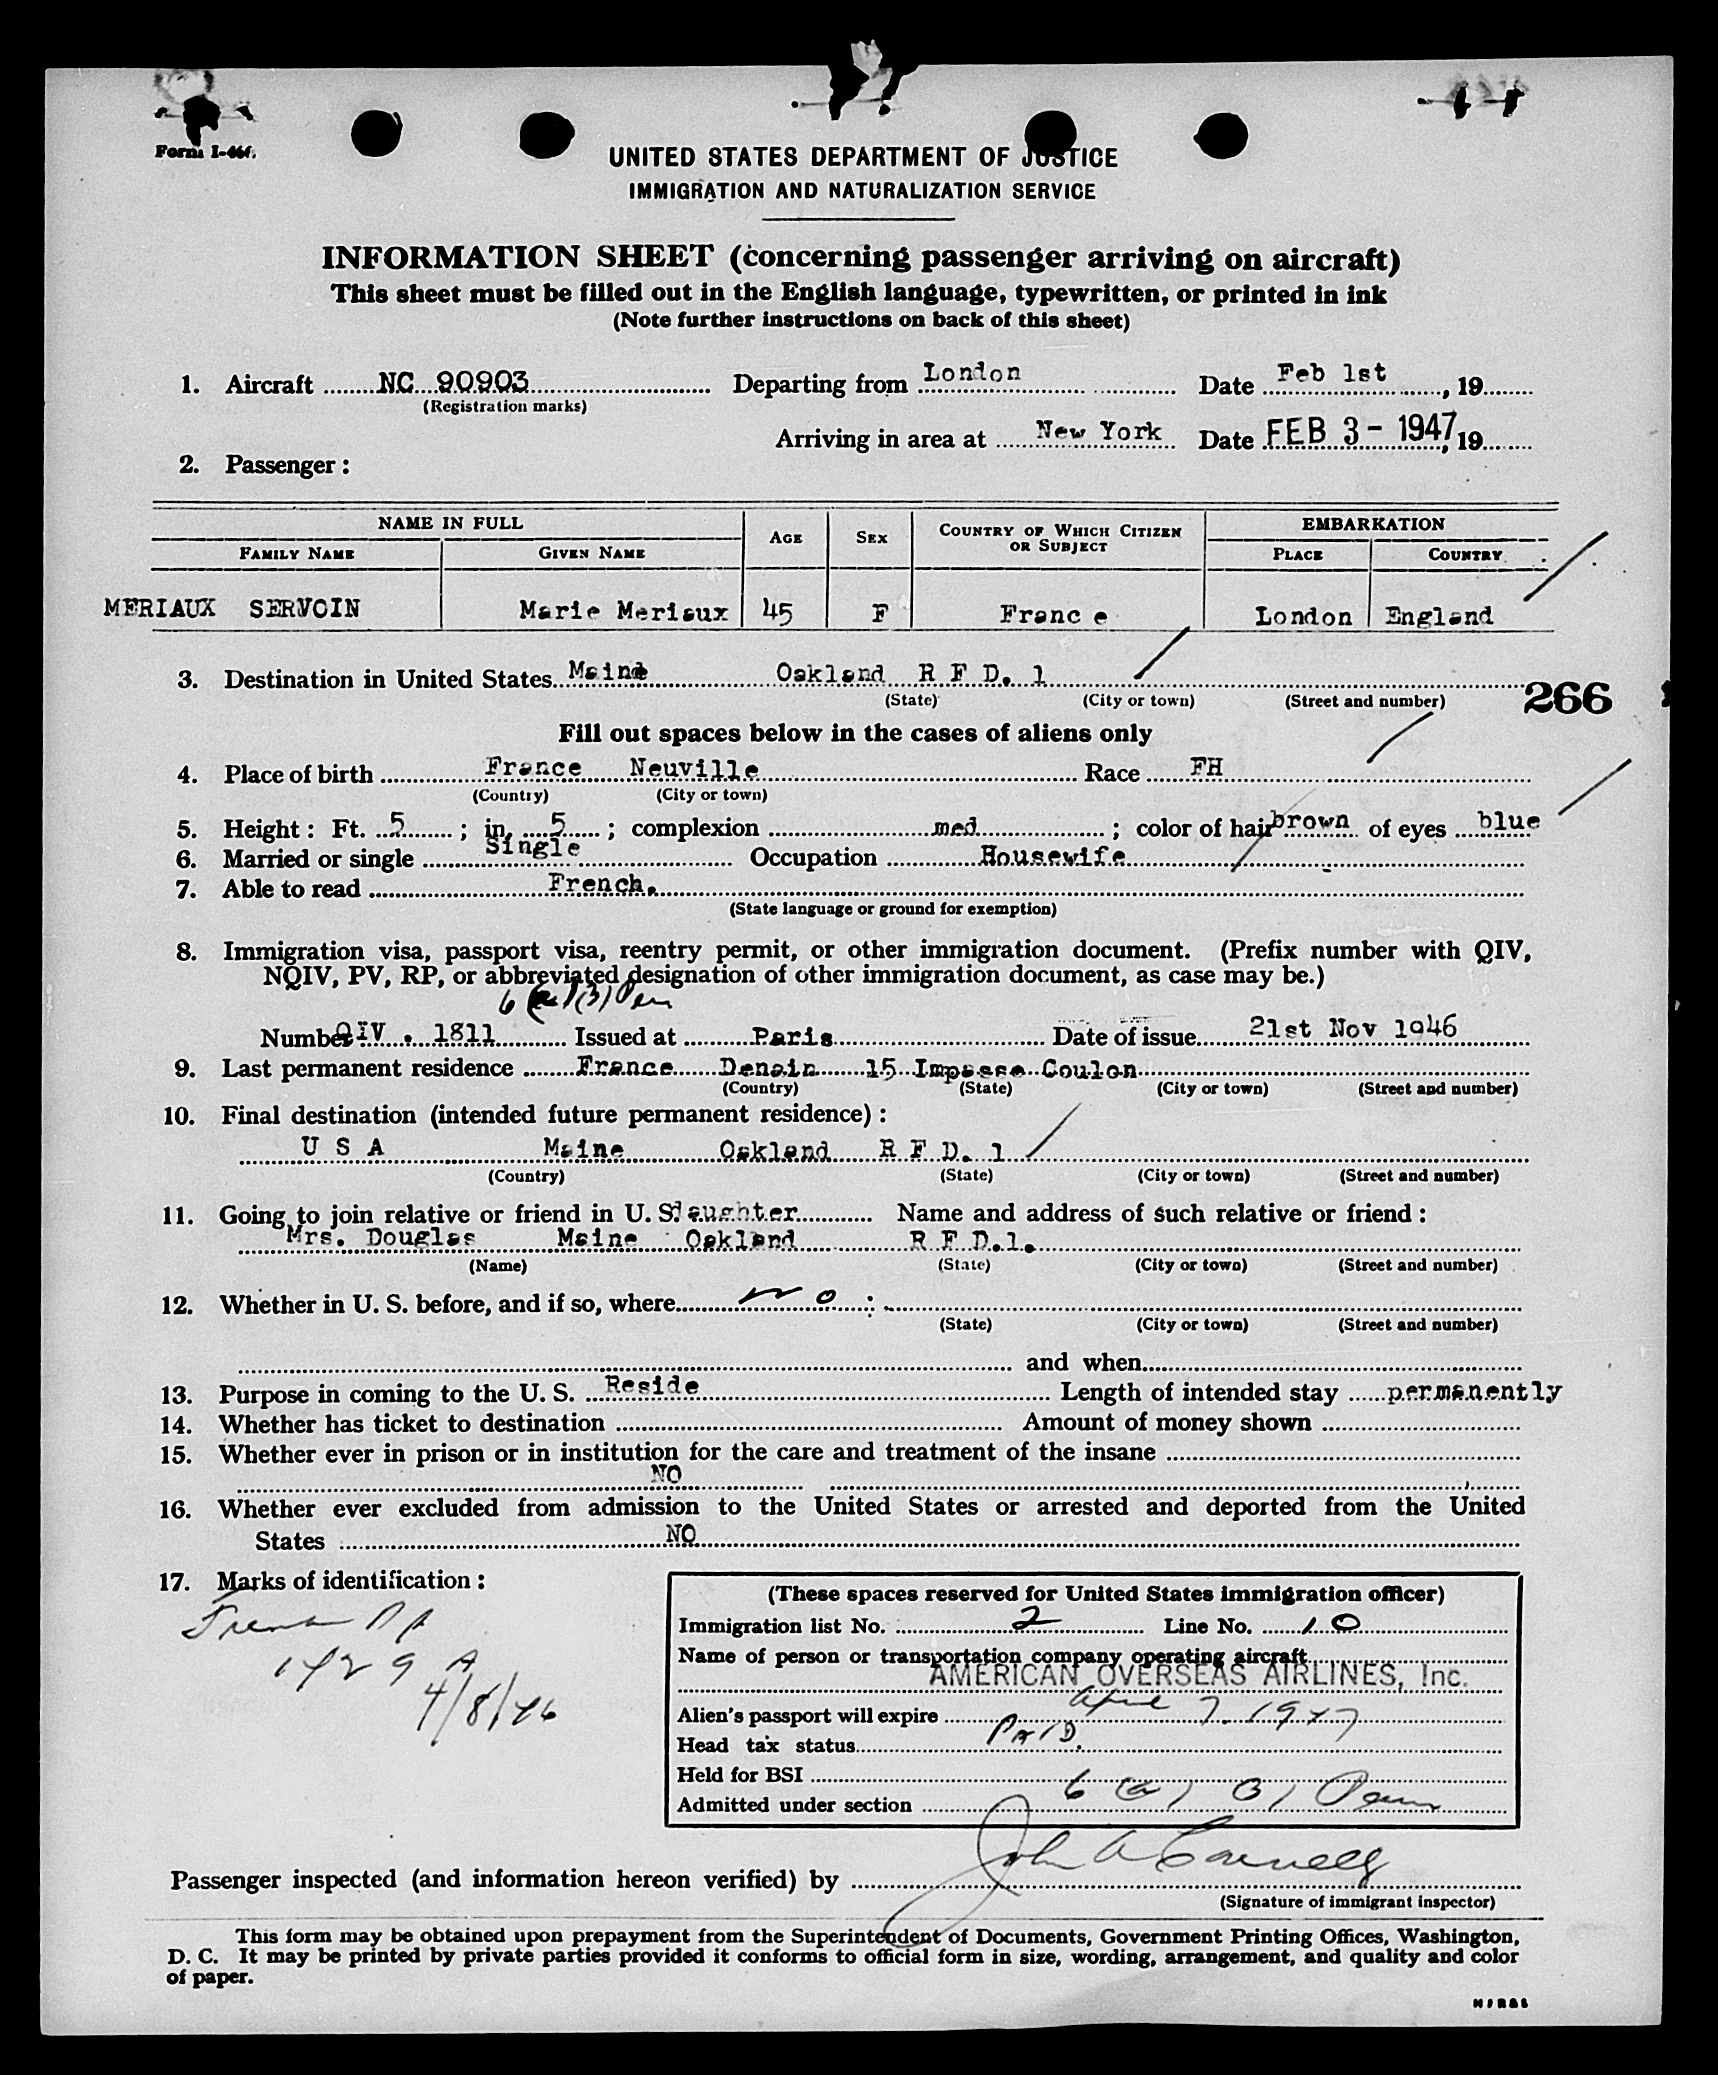 Form I-466.
UNITED STATES DEPARTMENT OF JUSTICE
IMMIGRATION AND NATURALIZATION SERVICE
INFORMATION SHEET (concerning passenger arriving on aircraft)
This sheet must be filled out in the English language, typewritten, or printed in ink
(Note further instructions on back of this sheet)
1. Aircraft NC 90903 Departing from London Date Feb 1st, 19
(Registration marks)
Arriving in area at New York Date FEB 3 - 1947, 19
2. Passenger:
NAME IN FULL AGE SEX COUNTRY OF WHICH CITIZEN OR SUBJECT EMBARKATION
FAMILY NAME GIVEN NAME PLACE COUNTRY
MERIAUX SERVOIN Marie Meriaux 45 F Franc e London England
3. Destination in United States Maine Oakland R F D. 1
(State) (City or town) (Street and number)
266
Fill out spaces below in the cases of aliens only
4. Place of birth France Neuville Race FH
(Country) (City or town)
5. Height: Ft. 5; in. 5; complexion med; color of hair brown of eyes blue
6. Married or single Single Occupation Housewife
7. Able to read French.
(State language or ground for exemption)
8. Immigration visa, passport visa, reentry permit, or other immigration document. (Prefix number with QIV,
NQIV, PV, RP, or abbreviated designation of other immigration document, as case may be.)
6 (a) (3) Per
Number QIV . 1811 Issued at Paris Date of issue 21st Nov 1946
9. Last permanent residence France Denain 15 Impasse Coulon
(Country) (State) (City or town) (Street and number)
10. Final destination (intended future permanent residence):
U S A Maine Oakland R F D. 1
(Country) (State) (City or town) (Street and number)
11. Going to join relative or friend in U. S. daughter Name and address of such relative or friend:
Mrs. Douglas Maine Oakland R F D.1.
(Name) (State) (City or town) (Street and number)
12. Whether in U. S. before, and if so, where no :
(State) (City or town) (Street and number)
and when
13. Purpose in coming to the U. S. Reside Length of intended stay permanently
14. Whether has ticket to destination Amount of money shown
15. Whether ever in prison or in institution for the care and treatment of the insane
NO
16. Whether ever excluded from admission to the United States or arrested and deported from the United
States NO
17. Marks of identification:
French PP
1429 A
4/8/46
(These spaces reserved for United States immigration officer)
Immigration list No. 2 Line No. 10
Name of person or transportation company operating aircraft
AMERICAN OVERSEAS AIRLINES, Inc.
Alien's passport will expire April 7. 1947
Head tax status PAID.
Held for BSI
Admitted under section 6 (a) (3) Perm
Passenger inspected (and information hereon verified) by John A
(Signature of immigrant inspector)
This form may be obtained upon prepayment from the Superintendent of Documents, Government Printing Offices, Washington,
D. C. It may be printed by private parties provided it conforms to official form in size, wording, arrangement, and quality and color
of paper.